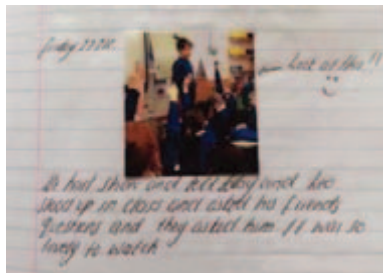 Friday
look at this!!
show and tell day and
stood up in class and asked his friends
questions and they asked him It was so
lovely to watch